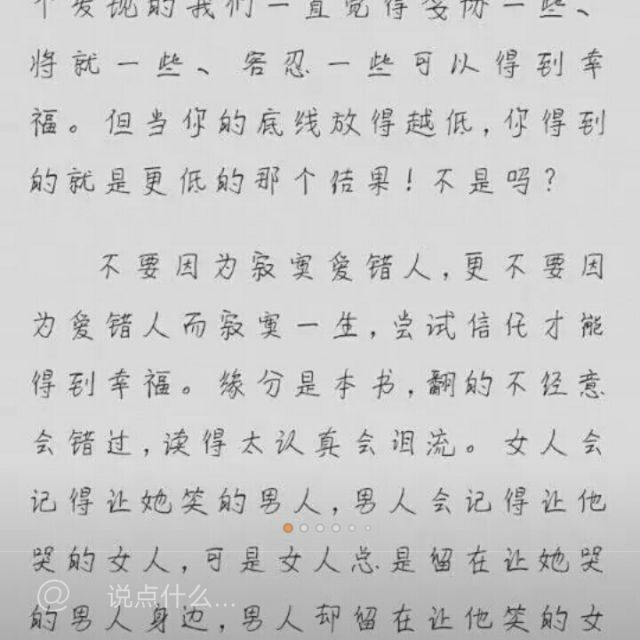 个发现的我们一直觉得妥协一些、
将就一些、容忍一些可以得到幸
福。但当你的底线放得越低,你得到
的就是更低的那个结果!不是吗?
不要因为寂寞爱错人,更不要因
为爱错人而寂寞一生,尝试信任才能
得到幸福。缘分是本书,翻的不经意
会错过,读得太认真会泪流。女人会
记得让她笑的男人,男人会记得让他
哭的女人,可是女人总是留在让她哭
@ 说点什么...
的男人身边,男人却留在让他笑的女